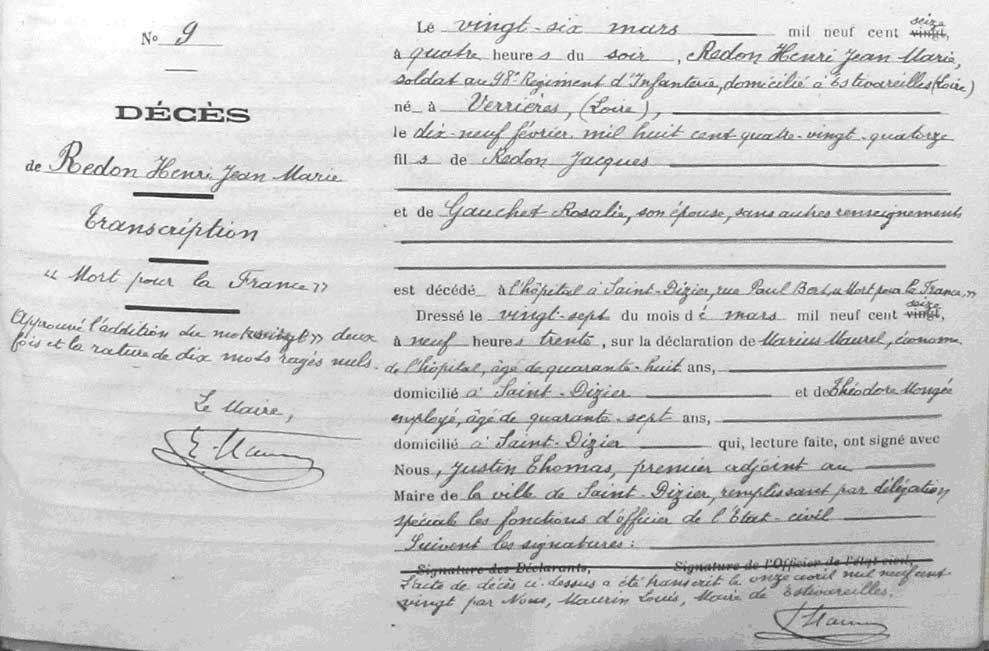 N° 9
DÉCÈS
de Redon Henri Jean Marie
Transcription
"Mort pour la France"
Approuvé l'addition du mot deux
fois et la rature de dix mots rayés nuls.
Le Maire,
Le vingt-six mars mil neuf cent vingt, seize
à quatre heures du soir, Redon Henri Jean Marie,
soldat au 98e Regiment d'Infanterie, domicilié à Estivareilles (Loire)
né à Verrières, (Loire),
le dix-neuf février mil huit cent quatre-vingt-quatorze
fils de Redon Jacques
et de Gauchet Rosalie, son épouse, sans autres renseignements
est décédé à l'hôpital à Saint-Dizier, rue Paul Bert, "Mort pour la France"
Dressé le vingt-sept du mois de mars mil neuf cent vingt, seize
à neuf heures trente, sur la déclaration de Marius Maurel, économe
de l'hôpital, âgé de quarante-huit ans,
domicilié à Saint-Dizier et de Théodore Mongée
employé, âgé de quarante-sept ans,
domicilié à Saint-Dizier qui, lecture faite, ont signé avec
Nous, Justin Thomas, premier adjoint au
Maire de la ville de Saint-Dizier, remplissant par délégation
spéciale les fonctions d'officier de l'État-civil
Suivent les signatures:
Signature des Déclarants, Signature de l'Officier de l'état civil,
L'acte de décès ci-dessus a été transcrit le onze avril mil neuf cent
vingt par Nous, Maurin Louis, Maire de Estivareilles.